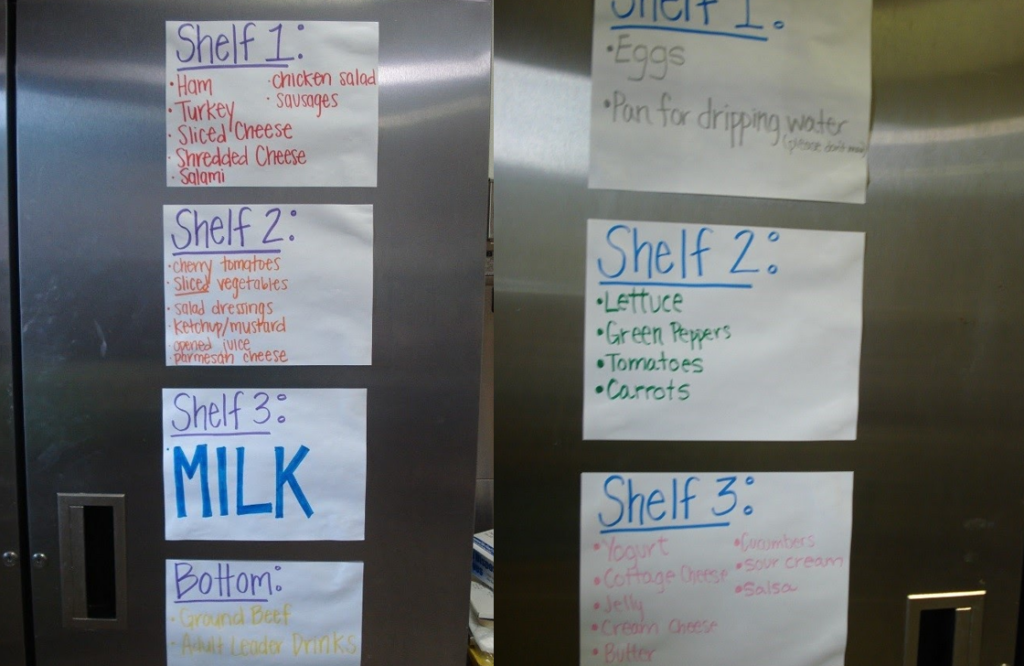 Shelf 1:
• Ham
• Turkey
• Sliced Cheese
• Shredded Cheese
• Salami
• chicken salad
• sausages
Shelf 2:
• cherry tomatoes
• sliced vegetables
• salad dressings
• ketchup/mustard
• opened juice
• parmesan cheese
Shelf 3:
MILK
Bottom:
• Ground Beef
• Adult Leader Drinks
Shelf 1:
• Eggs
• Pan for dripping water
(please don't
Shelf 2:
• Lettuce
• Green Peppers
• Tomatoes
• Carrots
Shelf 3:
• Yogurt
• Cottage Cheese
• Jelly
• Cream Cheese
• Butter
• Cucumbers
• sour cream
• Salsa